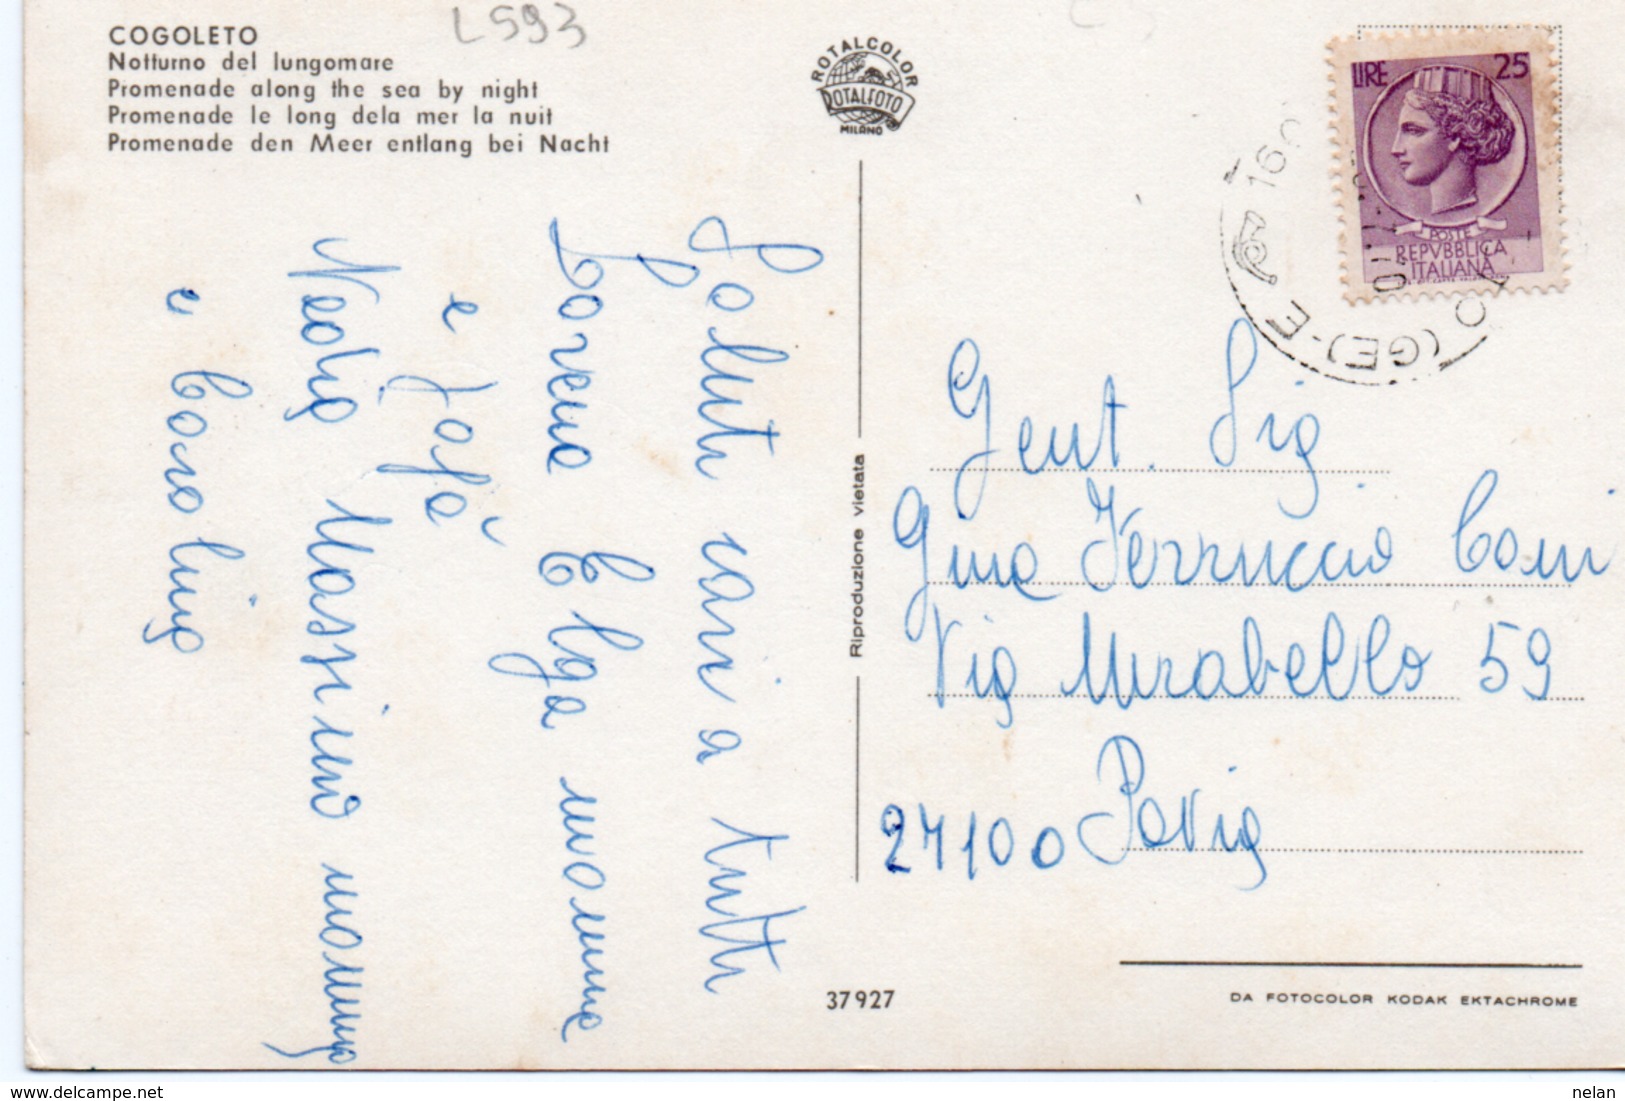 COGOLETO
Notturno del lungomare
Promenade along the sea by night
Promenade le long dela mer la nuit
Promenade den Meer entlang bei Nacht
L593
ROTALCOLOR
ROTALFOTO
MILANO
LIRE 25
POSTE
REPVBBLICA
ITALIANA
(GE)-E
Saluti cari a tutti
Lorena Elga nonna
e Fofò
Nadia Massimo nonno
e Carolina
Riproduzione vietata
Gent. Sig
Gina Ferruccio Comi
Via Mirabello 59
27100 Pavia
37927
DA FOTOCOLOR KODAK EKTACHROME
nelan